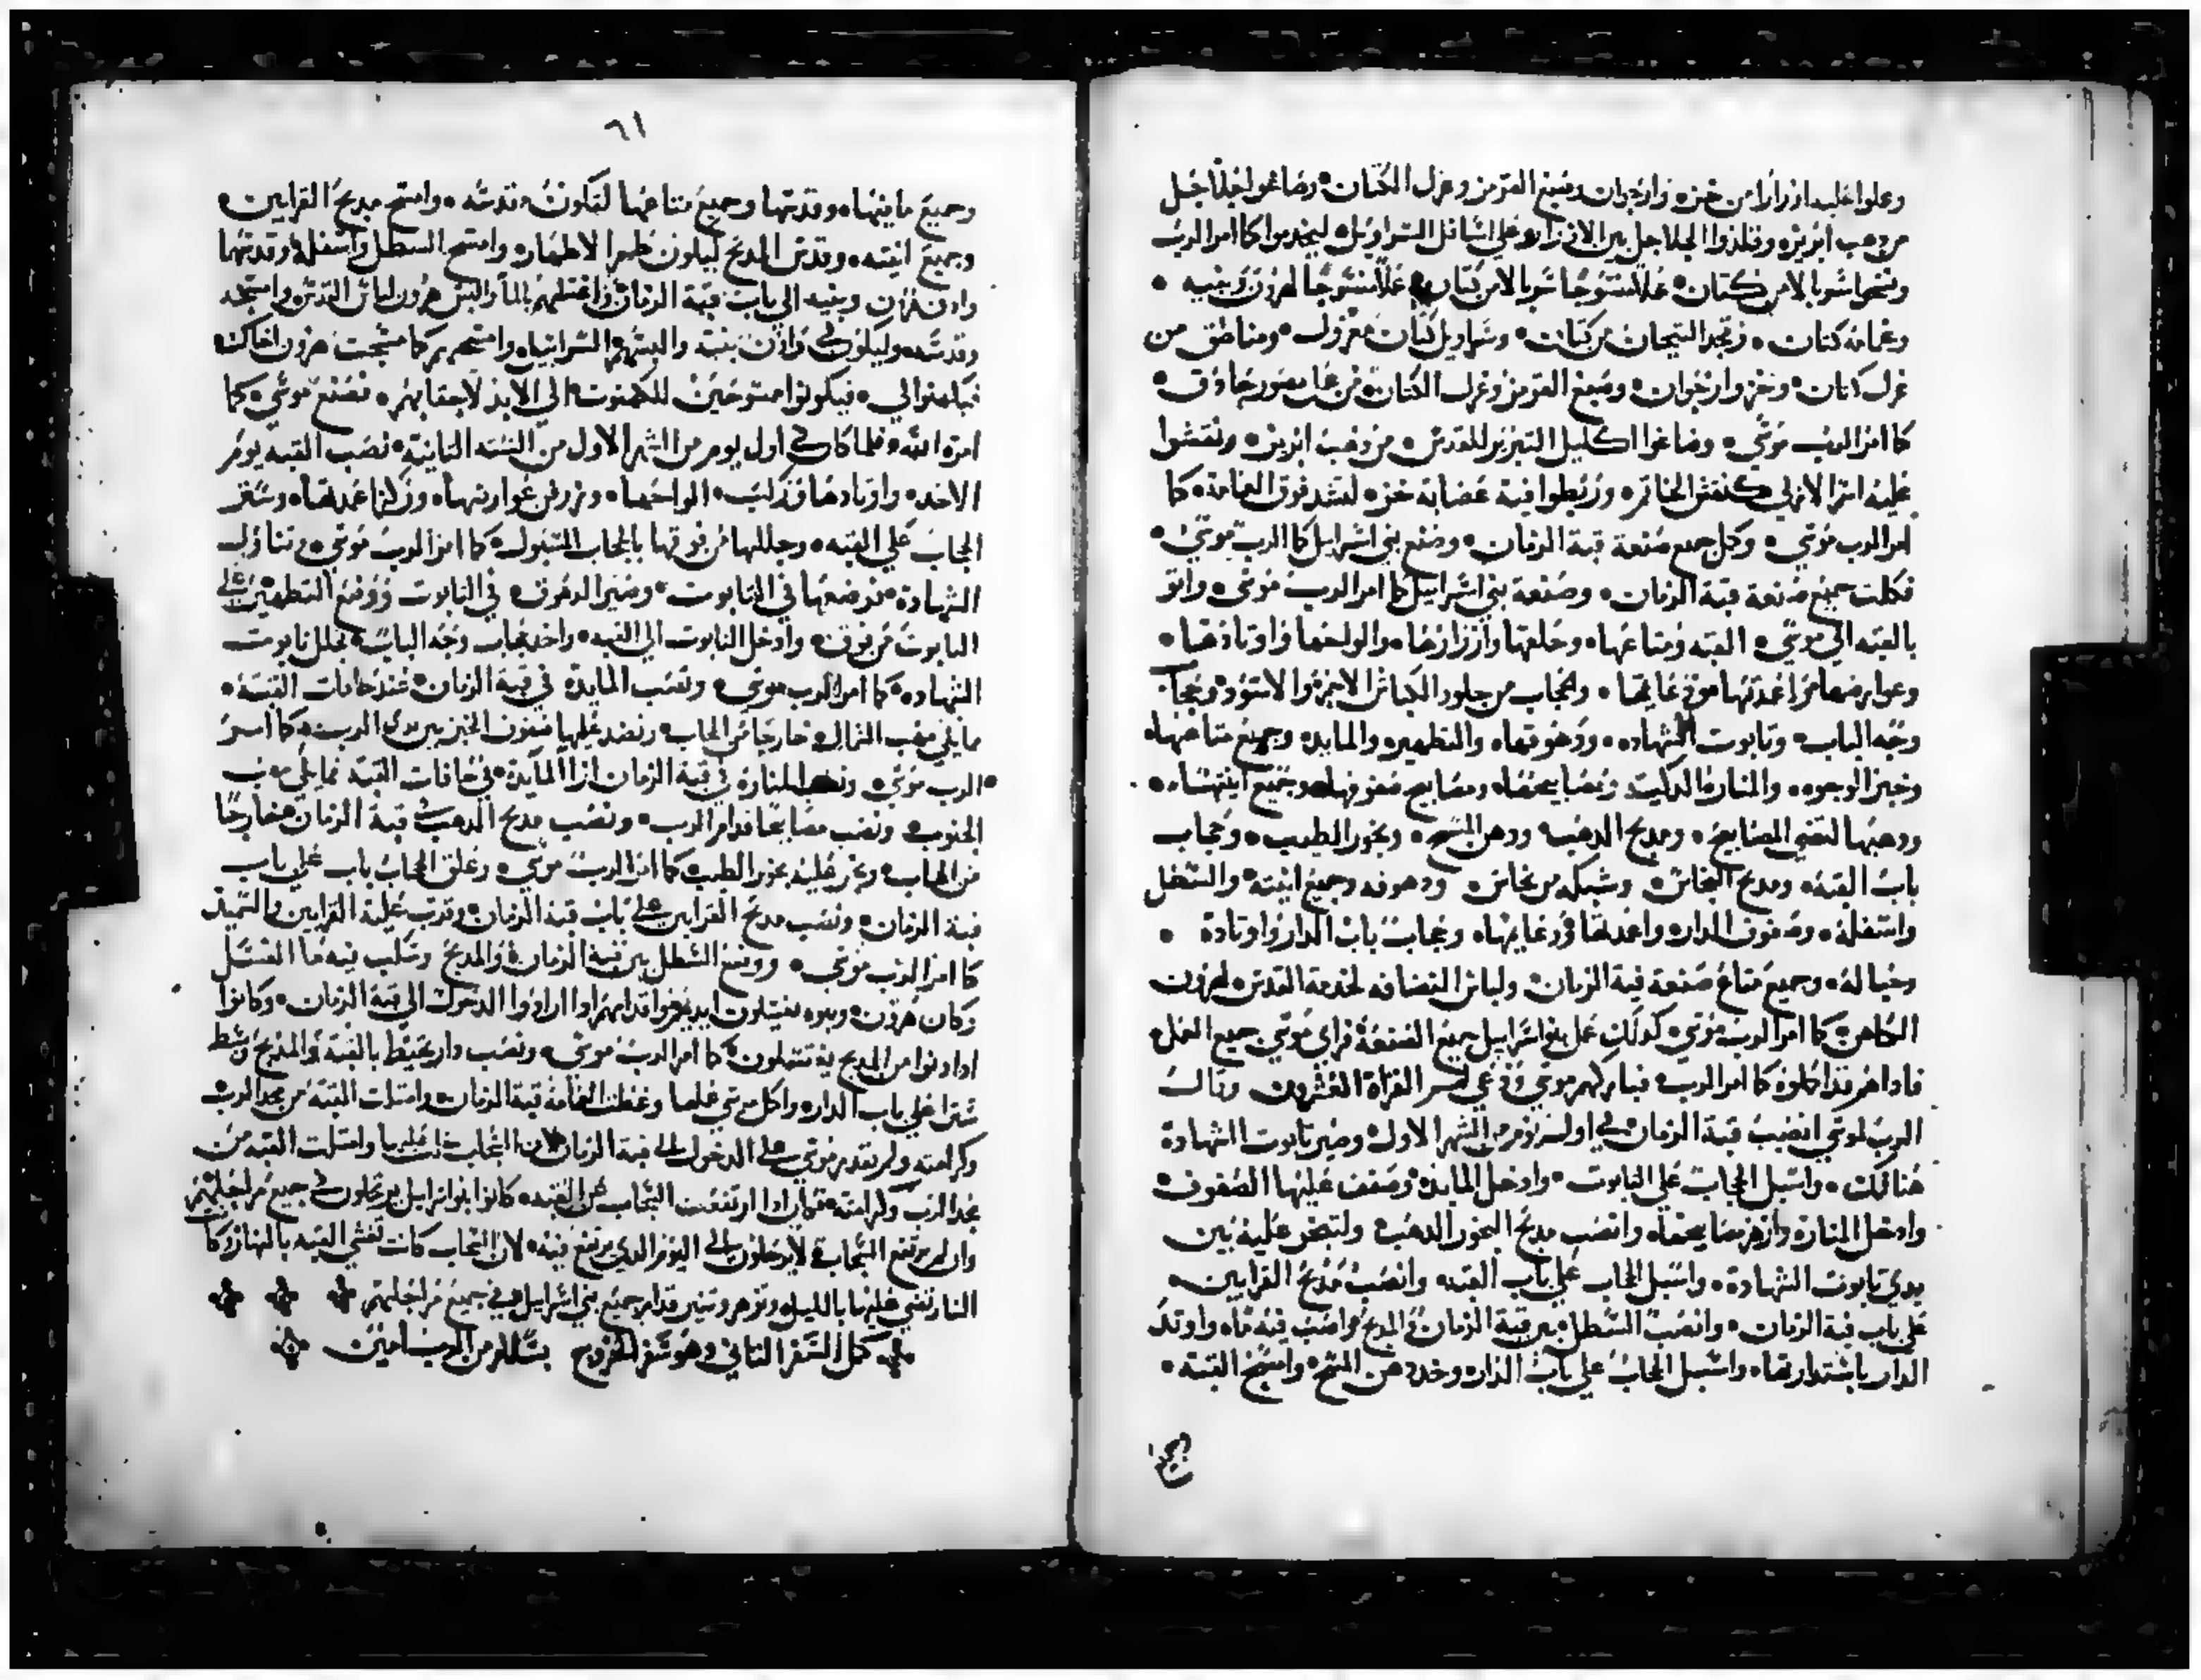 وعلوا عليه ازرارا من خز، وارجوان وصبغ القرمز وغزل الكتان، وصاغوا جلاجل
من دهب ابريز، وقلدوا الجلاجل بين الازرار، علي اسافل السراويل، ليخدموا كما امر الرب
ونسجوا سربالا من كتان، عملا منسوجا سربالا من كتان، عملا منسوجا لهرون وبنيه
وعمامة كتان، وتجد التيجان من كتان، وسراويل كتان مغزول، ومناطق من
غزل كتان، وخز وارجوان، وصبغ القرمز وغزل الكتان، من عمل مصور حادق
كما امر الرب موسي، وصاغوا اكليل التبرير للقدس، من دهب ابريز، ونقشوا
عليه اسم الازلي كنقش الخاتم، وربطوا فيه عصابة خز، لتشد فوق العمامة، كما
امر الرب موسي، وكمل جميع صنعة قبة الزمان، وصنع بني اسرايل كما الرب موسي،
فكملت جميع صنعة قبة الزمان، وصنعة بني اسرايل كما امر الرب موسي، واتو
بالقبه الي موسي، القبه ومتاعها، وحلقها وازرارها، والواحها واوتادها،
وعوارضها من اعمدتها، والحجاب من جلود الكباش الاحمر والاسود، وحجاب
وجه الباب، وتابوت الشهاده، ودهوقها، والتطهير، والمايده وجميع متاعها،
وخبز الوجوه، والمناره الدكيه، ومصابيحها، ومصابيح صفوفها، وجميع انيتها،
ودهنها لتضي المصابيح، ومدبح الدهب، ودهن المسح، وبخور الطيب، وحجاب
باب القبه، ومدبح النحاس، وشبكه من نحاس، ودهوقه وجميع انيته، والسطل
واسفله، وصفوف الدار، واعمدتها وزعانها، وحجاب باب الدار واوتادة
وحباله، وجميع متاع صنعة قبة الزمان، ولباس القضافه لخدمة القدس، لهرون
الكاهن، كما امر الرب موسي، كدلك عمل بنو اسرايل جميع الصنعة، فراي موسي جميع العمل
فادا هم قد اكملوة كما امر الرب، فباركهم موسي، القراة العشرون وقال
الرب لموسي انصب قبة الزمان، في اول يوم من الشهر الاول، وصير تابوت الشهادة
هنالك، واسبل الحجاب علي التابوت، وادخل المايده، وصفف عليها الصفوف،
وادخل المنارة وازهر مصابيحها، وانصب مدبح البخور الدهب، ولتبخر عليه بين
يدي تابوت الشهادة، واسبل الحجاب علي باب القبه وانصب مدبح القرابين
علي باب قبة الزمان، وانصب السطل بين قبة الزمان والمدبح، وصب فيه ماء، واوتد
الدار باستدارتها، واسبل الحجاب علي باب الدار، وخد دهن المسح، وامسح القبة،
وجميع
٦١
وجميع ما فيها، وقدسها وجميع متاعها لتكون مقدسه، وامسح مدبح القرابين،
وجميع انيته، وقدس المدبح ليكون طهر الاطهار، وامسح السطل واسفله، وقدسها
وادن هرون وبنيه الي باب قبة الزمان، واغسلهم بالما، والبس هرون لباس القدس، وامسحه
وقدسه، وليكون لي وادن بنيه والبسهم السرابيل، وامسحهم كما مسحت هرون اخاك
فيكهنوا لي، فيكونوا ممسوحين للكهنوت، الي الابد لاحقابهم، فصنع موسي، كما
امرة الله، فلما كان في اول يوم من الشهر الاول من السنه التانية، نصب القبه يوم
الاحد، واوتادها، وركب الواحها، وزرفن عوارضها، وركز اعمدتها، وستر
الحجاب علي القبه، وجللها من فوقها بالحجاب المسبول، كما امر الرب موسي، وتناول
الشهادة، فوضعها في التابوت، وصير الدهوق، في التابوت ووضع التطهير علي
التابوت من فوق، وادخل التابوت الي القبه، واخد حجاب وجه الباب، فجلل تابوت
الشهاده، كما امر الرب موسي، ونصب المايدة في قبة الزمان، عند حافات القبه،
مما يلي مهب الشمال، خارجا من الحجاب، ونضد عليها صفوف الخبز بين يدي الرب، كما امر
الرب موسي، ونصب المنارة في قبة الزمان ازا المايدة، في حافات القبة مما يلي مهب
الجنوب، ونصب مصابيحها قدام الرب، ونصب مدبح الدهب في قبة الزمان، خارجا
من الحجاب، وبخر عليه بخور الطيب كما امر الرب موسي، وعلق الحجاب باب علي باب
قبة الزمان، ونصب مدبح القرابين علي باب قبة الزمان، وقرب عليه القرابين والسميد
كما امر الرب موسي، ووضع السطل بين قبة الزمان، والمدبح، وسكب فيه ما الغسل
وكان هرون، وبنوه يغسلون ايديهم، واقدامهم ادا ارادوا الدخول الي قبة الزمان، وكانوا
ادا دنوا من المدبح يغتسلون، كما امر الرب موسي، ونصب دار تحيط بالقبة والمدبح، وبسط
سترا علي باب الدار، واكمل موسي عملها وغطت الغمامة قبة الزمان، وامتلت القبة من مجد الرب،
وكرامته ولم يقدر موسي علي الدخول الي قبة الزمان لان السحاب عليها وامتلت القبه من
مجد الرب، وكرامته، فكان ادا ارتفعت السحاب عن القبه، كانوا بنوا اسرايل يرتحلون في جميع مراحلهم
وان لم يرتفع السحاب، لا يرحلون الي اليوم الدي يرتفع فيه، لان السحاب كانت تغشي القبه بالنهار، وكا
النار تضي عليها بالليل، وتوهر وتنير قدام جميع بني اسرايل في جميع مراحلهم،
كمل السفر التاني وهو سفر الخروج بسلام من الرب امين